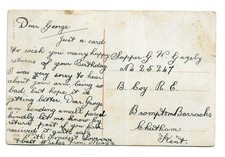 Dear George
Just a card
to wish you many happy
returns of your Birthday
I was very sorry to hear
about your arm being so
bad, but hope it is
getting better. Dear George
am sending small parcel
kindly let me know
received it quite safe
With Love
Best Wishes from
Sapper G W Gazely
No 25247
B. Coy. R. E.
Brompton Barracks
Chatham
Kent.